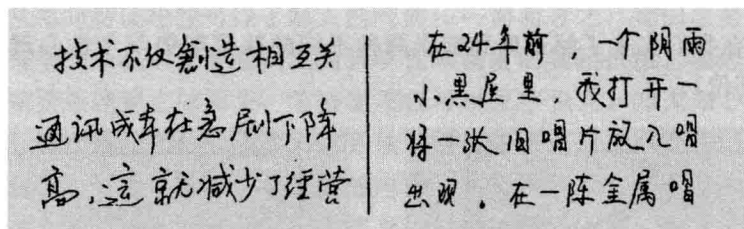 技术不仅创造相互关
通讯成本在急剧下降
高,这就减少了经营
在24年前,一个阴雨
小黑屋里,我打开一
将一张旧唱片放入唱
出现。在一陈金属唱